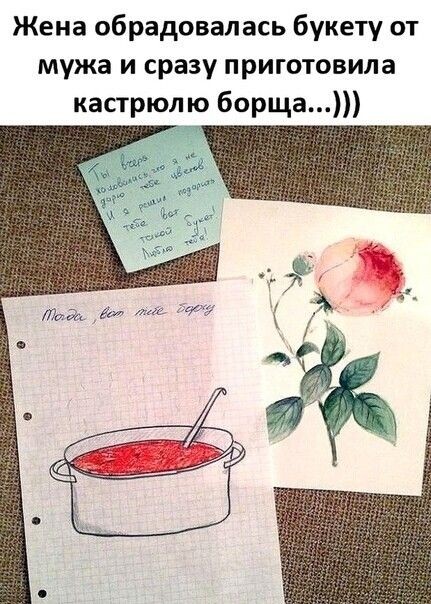 Жена обрадовалась букету от
мужа и сразу приготовила
кастрюлю борща...)))
Ты вчера
жаловалась, что я не
дарю тебе цветов
И я решил подарить
тебе вот
такой букет!
Люблю тебя!
Тогда, вот тебе борщ